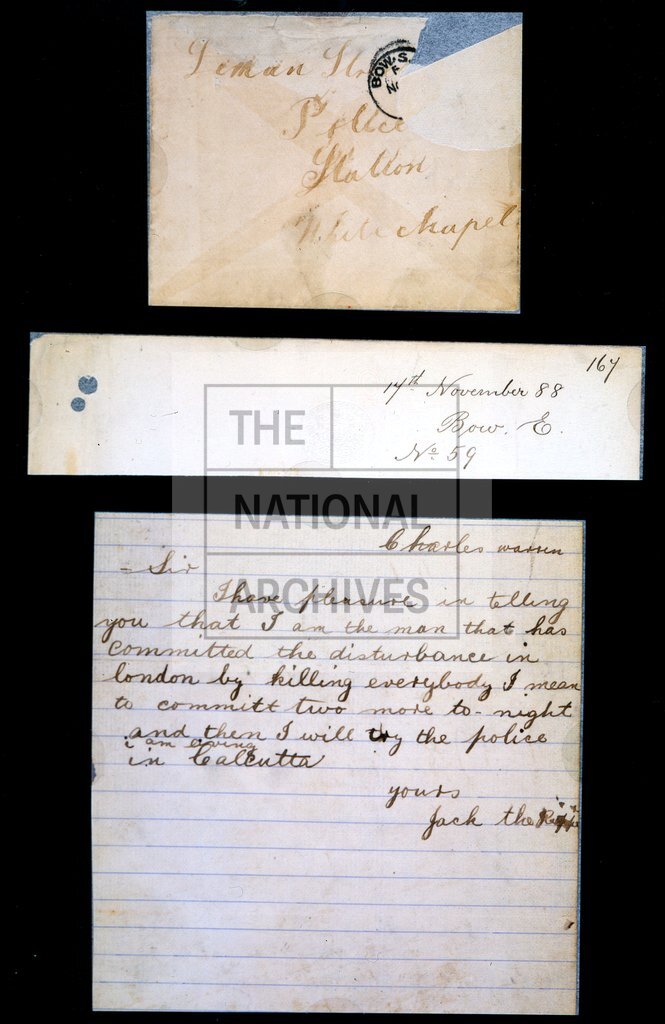 Leman Str
Police
Station
White Chapel
BOW. S.
F
N
167
14th November 88
Bow. E.
No. 59
THE
NATIONAL
ARCHIVES
Charles warren
Sir
I have pleasure in telling
you that I am the man that has
committed the disturbance in
london by killing everybody I mean
to committ two more to-night
and then I will try the police
i am going
in Calcutta
yours
Jack the Rippe